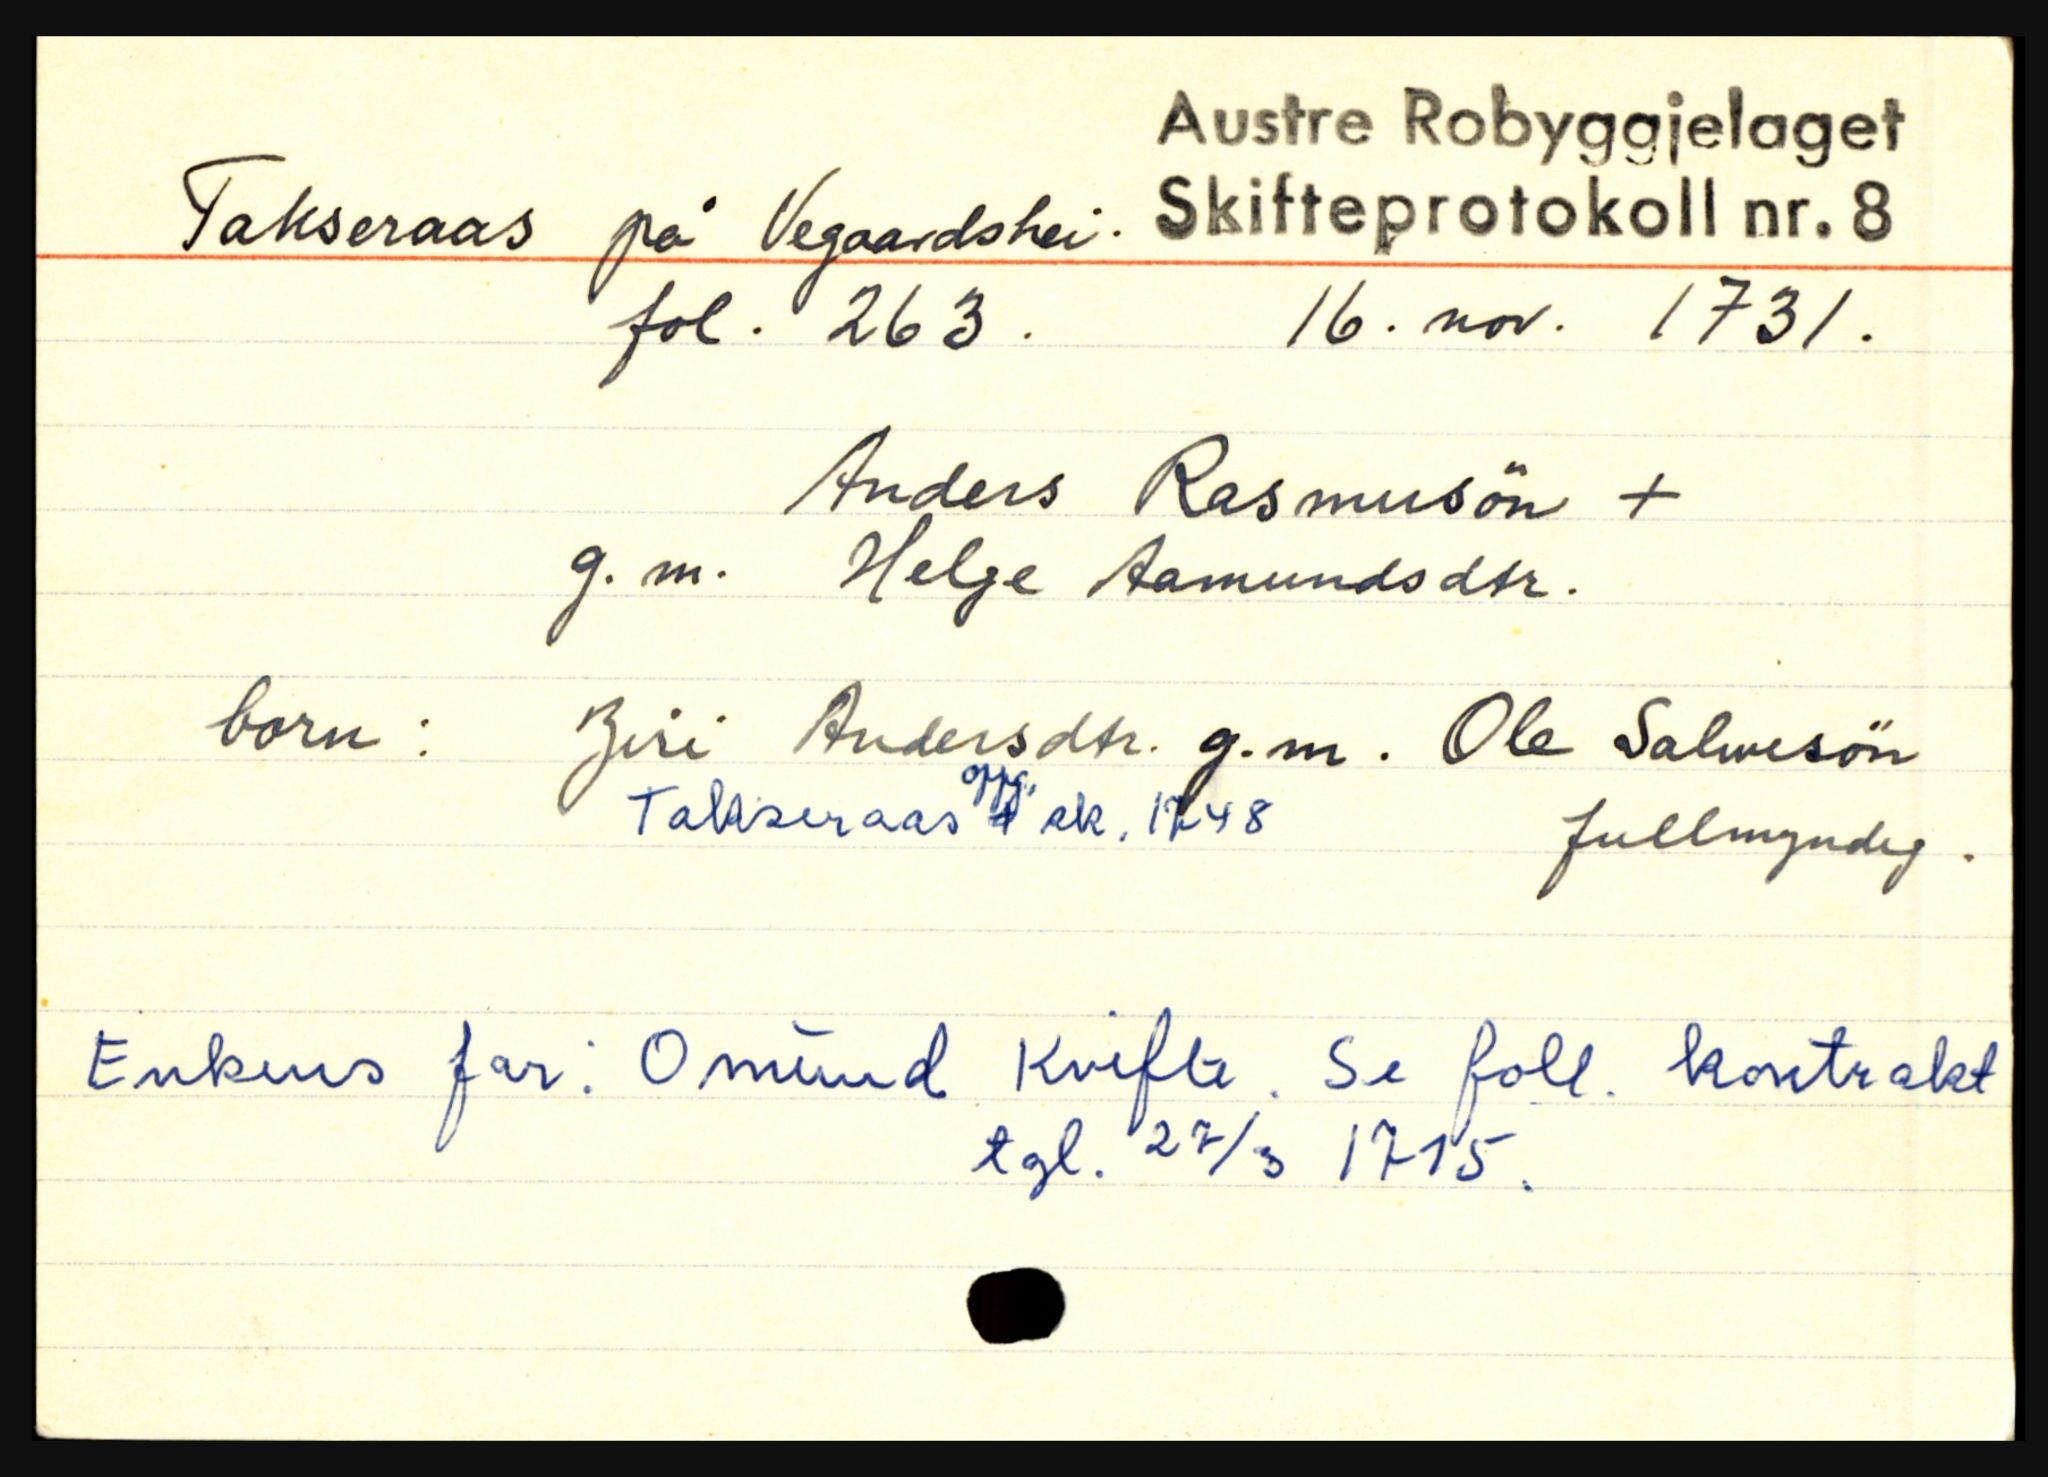 Austre Robyggjelaget
Takseraas på Vegaardshei. Skifteprotokoll nr. 8
fol. 263. 16. nov. 1731.
Anders Rasmusön +
g. m. Helge Aamundsdtr.
born: Andersdtr. g.m. Ole Salvesön
Takseraas oppg. sk. 1748 fullmyndig.
Enkens far: Omund Kvifte. Se foll. kontrakt
tgl. 27/3 1715.